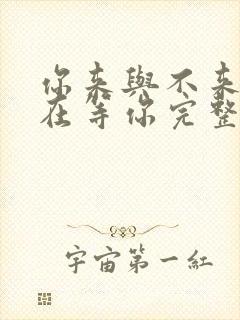 你来與不来
在等你完整
宇宙第一紅